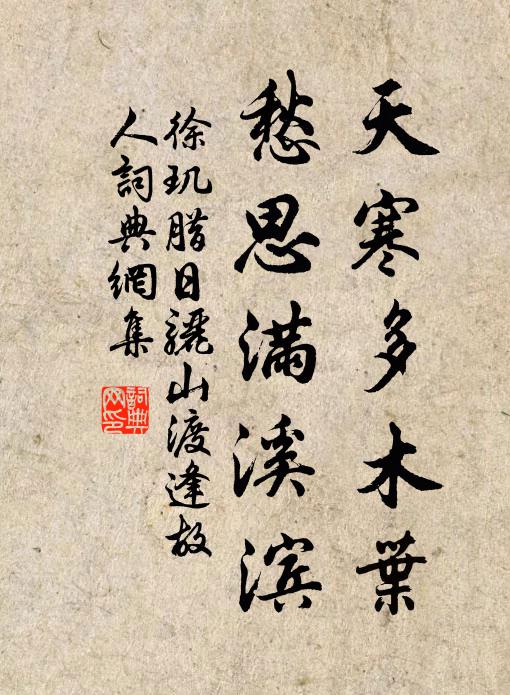 天寒多木葉
愁思满溪滨
徐玑腊日骊山渡逢故
人詞典網集
詞典
网印